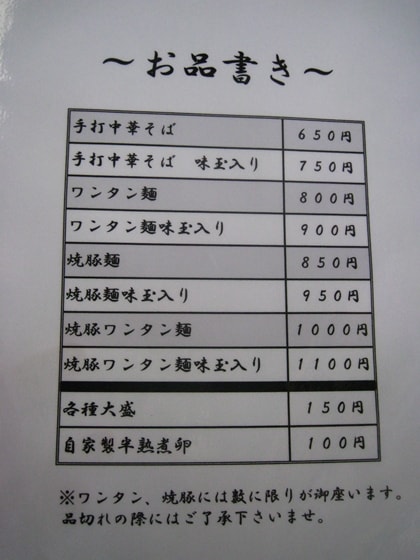 ～お品書き～
手打中華そば 650円
手打中華そば 味玉入り 750円
ワンタン麺 800円
ワンタン麺味玉入り 900円
焼豚麺 850円
焼豚麺味玉入り 950円
焼豚ワンタン麺 1000円
焼豚ワンタン麺味玉入り 1100円
各種大盛 150円
自家製半熟煮卵 100円
※ワンタン、焼豚には数に限りが御座います。
品切れの際にはご了承下さいませ。